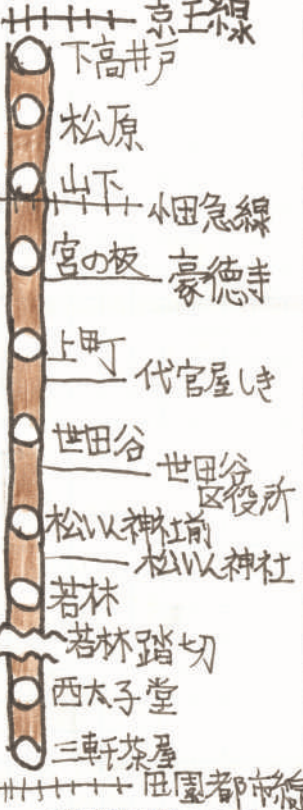 京王線
下高井戸
松原
山下
小田急線
宮の板
豪徳寺
上町
代官屋しき
世田谷
世田谷
区役所
松いん神社前
松いん神社
若林
若林踏切
西太子堂
三軒茶屋
田園都市線